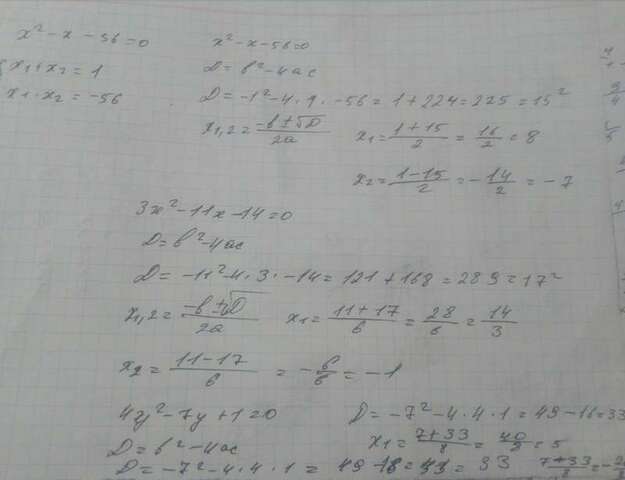 x² - x - 56 = 0
x₁ + x₂ = 1
x₁ · x₂ = -56
x² - x - 56 = 0
D = b² - 4ac
D = -1² - 4 · 1 · -56 = 1 + 224 = 225 = 15²
x₁,₂ = (-b ± √D)/2a   x₁ = (1 + 15)/2 = 16/2 = 8
x₂ = (1 - 15)/2 = -14/2 = -7
3x² - 11x - 14 = 0
D = b² - 4ac
D = -11² - 4 · 3 · -14 = 121 + 168 = 289 = 17²
x₁,₂ = (-b ± √D)/2a   x₁ = (11 + 17)/6 = 28/6 = 14/3
x₂ = (11 - 17)/6 = -6/6 = -1
4y² - 7y + 1 = 0
D = b² - 4ac
D = -7² - 4 · 4 · 1 =
33
D = -7² - 4 · 4 · 1 = 49 - 16 = 33
x₁ = (7 + 33)/8 = 40/8 = 5